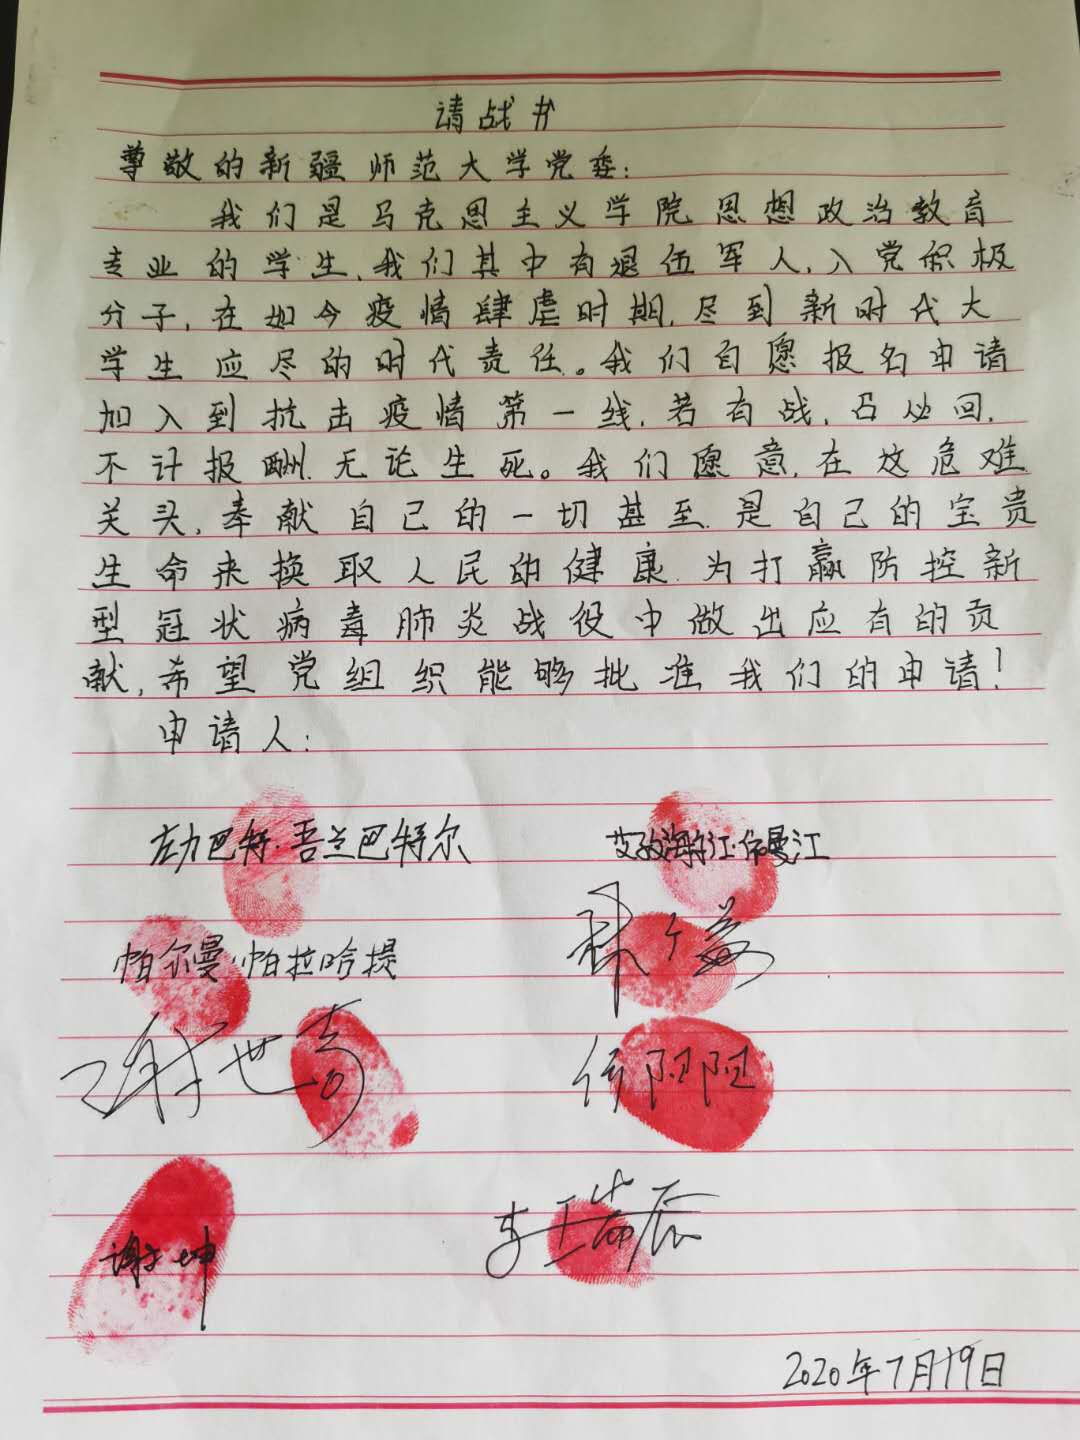 请战书
尊敬的新疆师范大学党委:
我们是马克思主义学院思想政治教育
专业的学生,我们其中有退伍军人,入党积极
分子,在如今疫情肆虐时期,尽到新时代大
学生应尽的时代责任。我们自愿报名申请
加入到抗击疫情第一线,若有战,召必回,
不计报酬,无论生死。我们愿意,在这危难
关头,奉献自己的一切甚至是自己的宝贵
生命来换取人民的健康,为打赢防控新
型冠状病毒肺炎战役中做出应有的贡
献,希望党组织能够批准我们的申请!
申请人:
巴特·吾兰巴特尔
江·曼江
帕尔曼·帕拉哈提
谢世奇
阳阳
谢坤
李瑞辰
2020年7月19日